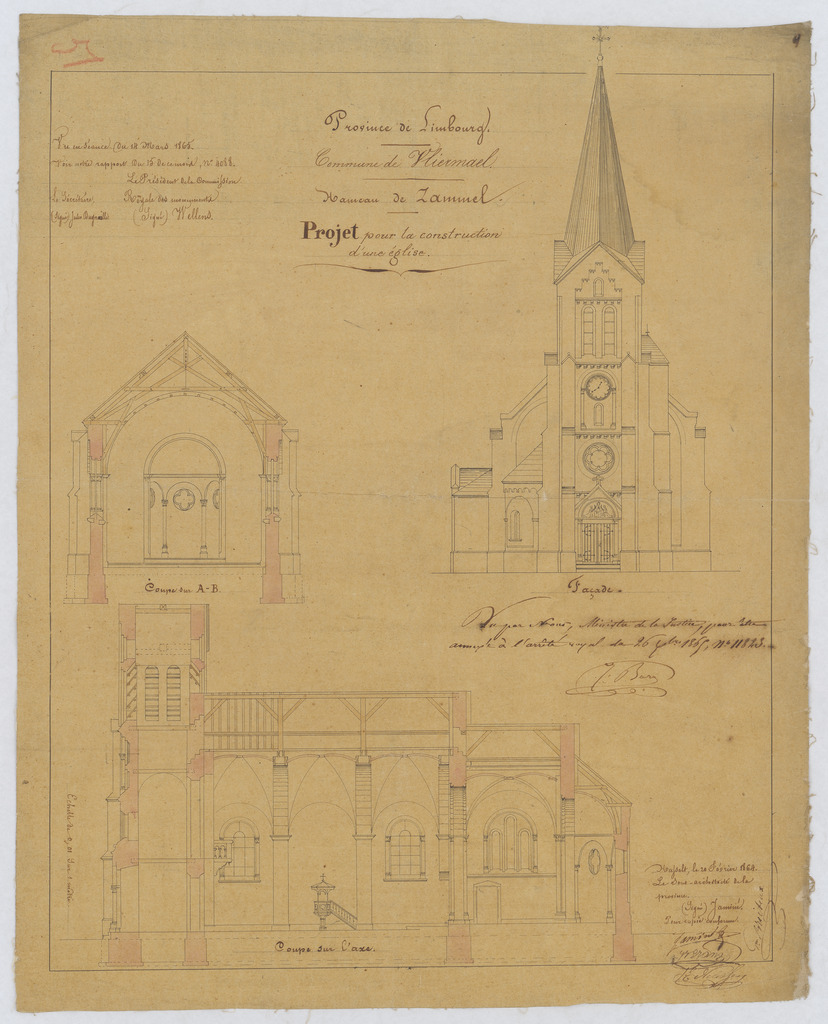 Vu en séance du 18 Mars 1865.
rapport du 15 de ce mois, Nº
Le Président de la Commission
Le Secrétaire, Royale des monuments
(Signé) Jules (Signé) Wellens.
Province de Limbourg.
Commune de Vliermael.
Hameau de Zammel.
Projet pour la construction
d'une église.
Coupe sur A-B.
Façade.
Vu par Nous, Ministre de la Justice, pour être
annexé à l'arrêté royal du 26 1865, Nº 11823.
J. Bara
Coupe sur l'axe.
Echelle de
Hasselt, le 20 Février 186
Le Sous-architecte de la
province,
(Signé) Jaminé
Pour copie conforme